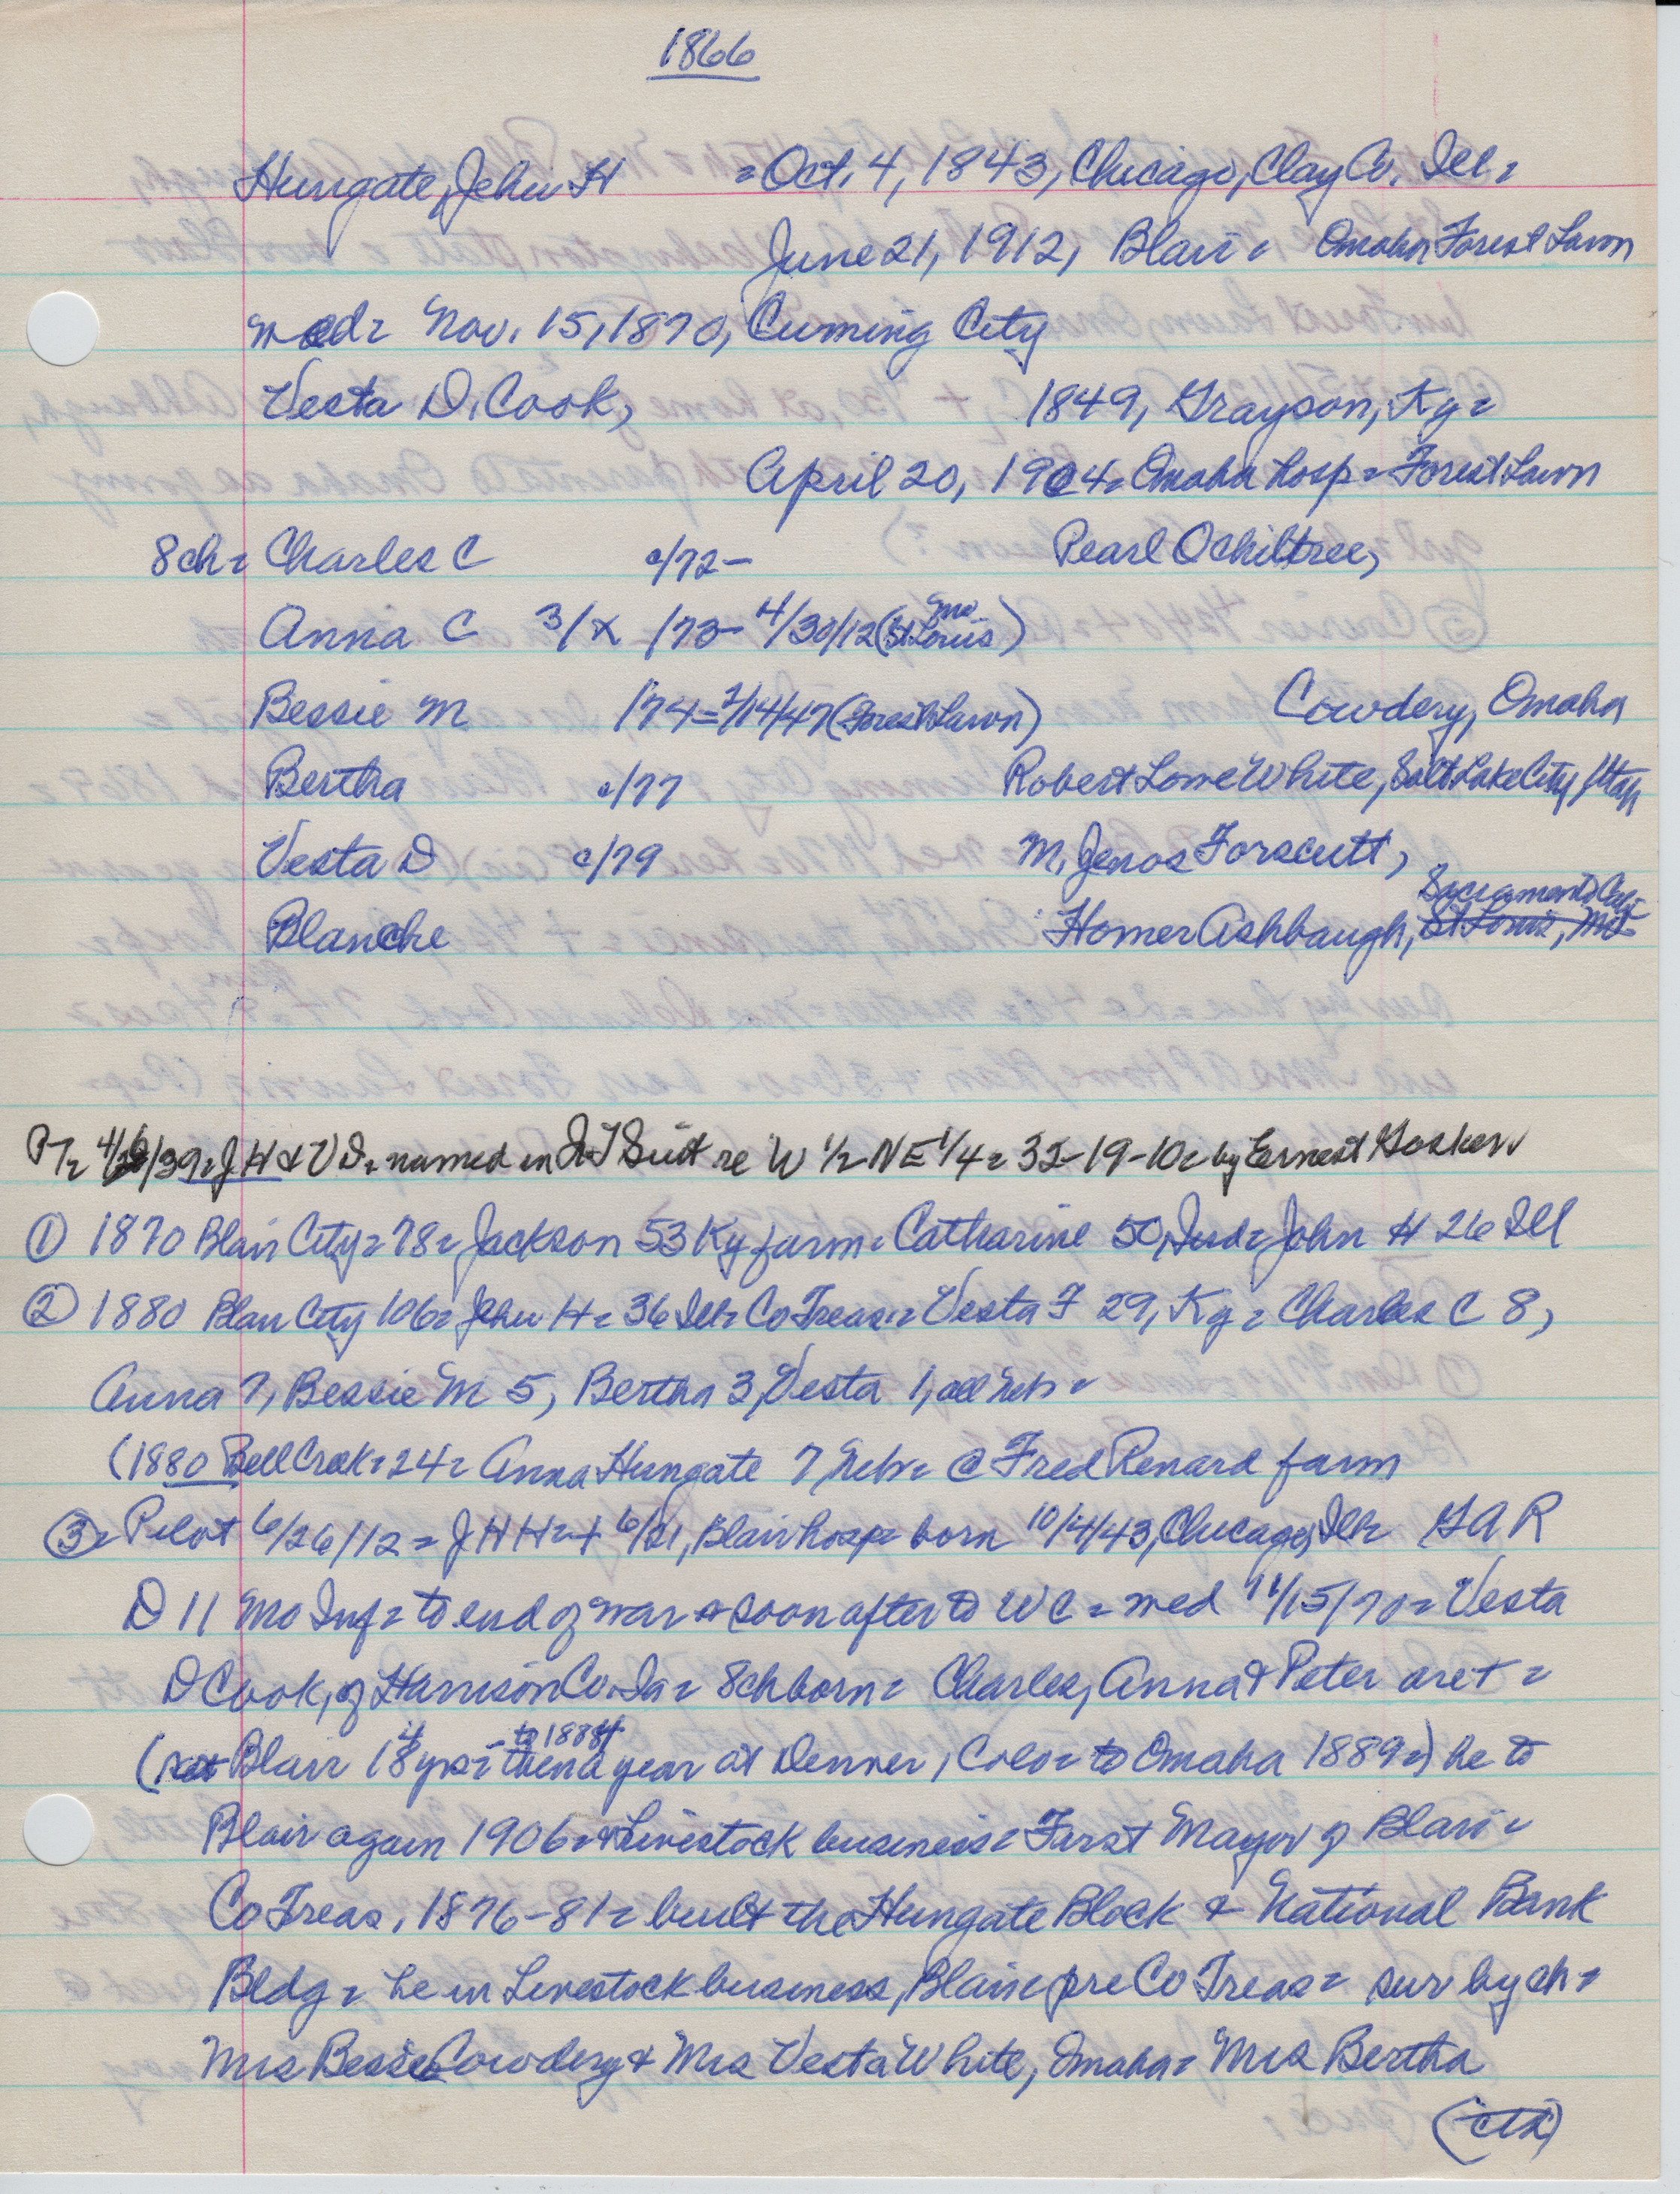 1866
Hungate, John H = Oct. 4, 1843, Chicago, Clay Co. Ill =
June 21, 1912, Blair = Omaha Forest Lawn
med = Nov. 15, 1870, Cuming City
Vesta D. Cook, 1849, Grayson, Ky =
April 20, 1904 = Omaha hosp = Forest Lawn
8ch = Charles C c/72 - Pearl Ochiltree,
Anna C 3/x /73 - 4/30/12 (St Louis Mo)
Bessie M /74 = 2/14/47 (Forest Lawn) Cowdery, Omaha
Bertha c/77 Robert Lowe White, Salt Lake City, Utah
Vesta D c/79 M. Jenos Forscutt,
Sacramento Cal
Blanche Homer Ashbaugh, St Louis, Mo
PT = 4/6/39 = J H & V D = named in Suit re W 1/2 NE 1/4 = 32-19-10 = by Ernest Gosker
① 1870 Blair City = 78 = Jackson 53 Ky farm = Catharine 50, Ind = John H 26 Ill
② 1880 Blair City 106 = John H = 36 Ill = Co Treas = Vesta F 29, Ky = Charles C 8,
Anna 7, Bessie M 5, Bertha 3, Vesta 1, all Neb =
(1880 Bell Creek = 24 = Anna Hungate 7 Neb = @ Fred Renard farm
③ = Pilot 6/26/12 = J H H = + 6/21, Blair hosp = born 10/4/43, Chicago, Ill = G A R
D 11 Mo Inf = to end of war & soon after to W C = med 11/15/70 = Vesta
D Cook, of Harrison Co. Ia = 8ch born = Charles, Anna & Peter are + =
( Blair 14 yrs = to 1884 then a year at Denver, Colo = to Omaha 1889 =) he to
Blair again 1906 = & Livestock business = First Mayor of Blair =
Co Treas, 1876-81 = built the Hungate Block & National Bank
Bldg = he in Livestock business, Blair pre Co Treas = sur by ch =
Mrs Bessie Cowdery & Mrs Vesta White, Omaha = Mrs Bertha
(ctd)